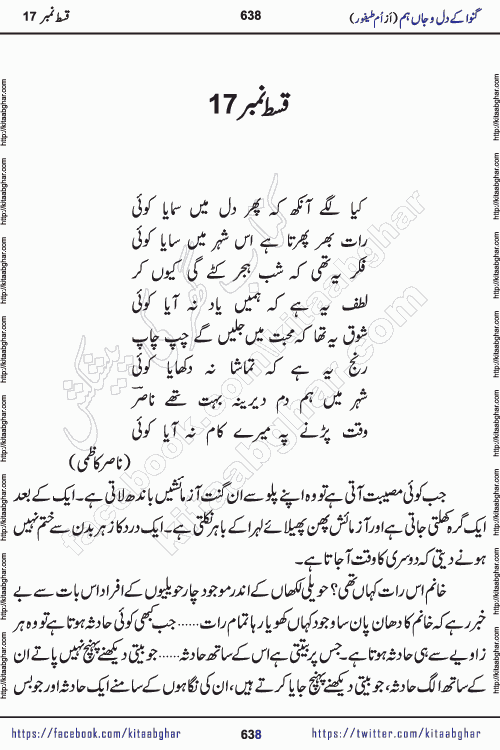 گنوا کے دل و جاں ہم (از اُم طیفور) 638 قسط نمبر 17
قسط نمبر 17
کیا لگے آنکھ کہ پھر دل میں سمایا کوئی
رات بھر پھرتا ہے اس شہر میں سایا کوئی
فکر یہ تھی کہ شب ہجر کٹے گی کیوں کر
لطف یہ ہے کہ ہمیں یاد نہ آیا کوئی
شوق یہ تھا کہ محبت میں جلیں گے چپ چاپ
رنج یہ ہے کہ تماشا نہ دکھایا کوئی
شہر میں ہم دم دیرینہ بہت تھے ناصرؔ
وقت پڑنے پہ میرے کام نہ آیا کوئی
(ناصر کاظمی)
جب کوئی مصیبت آتی ہے تو وہ اپنے پلو سے ان گنت آزمائشیں باندھ لاتی ہے۔ ایک کے بعد
ایک گرہ کھلتی جاتی ہے اور آزمائش پھن پھیلائے لہرا کے باہر نکلتی ہے۔ ایک درد کا زہر بدن سے ختم نہیں
ہونے دیتی کہ دوسری کا وقت آ جاتا ہے۔
خانم اس رات کہاں تھی؟ حویلی لکھاں کے اندر موجود چار حویلیوں کے افراد اس بات سے بے
خبر رہے کہ خانم کا دھان پان سا وجود کہاں کھویا رہا تمام رات...... جب کبھی کوئی حادثہ ہوتا ہے تو وہ ہر
زاویے سے ہی حادثہ ہوتا ہے۔ جس پر بیتتی ہے اس کے ساتھ حادثہ...... جو بیتی دیکھنے پہنچ نہیں پاتے ان
کے ساتھ الگ حادثہ، جو بیتی دیکھنے پہنچ جایا کرتے ہیں، ان کی نگاہوں کے سامنے ایک حادثہ اور جو بس
https://facebook.com/kitaabghar 638 https://twitter.com/kitaabghar
http://kitaabghar.com http://kitaabghar.com http://kitaabghar.com http://kitaabghar.com http://kitaabghar.com http://kitaabghar.com http://kitaabghar.com http://kitaabghar.com
http://kitaabghar.com http://kitaabghar.com http://kitaabghar.com http://kitaabghar.com http://kitaabghar.com http://kitaabghar.com http://kitaabghar.com http://kitaabghar.com
کتاب گھر کی پیشکش
kitaabghar.com
facebook.com/kitaabghar